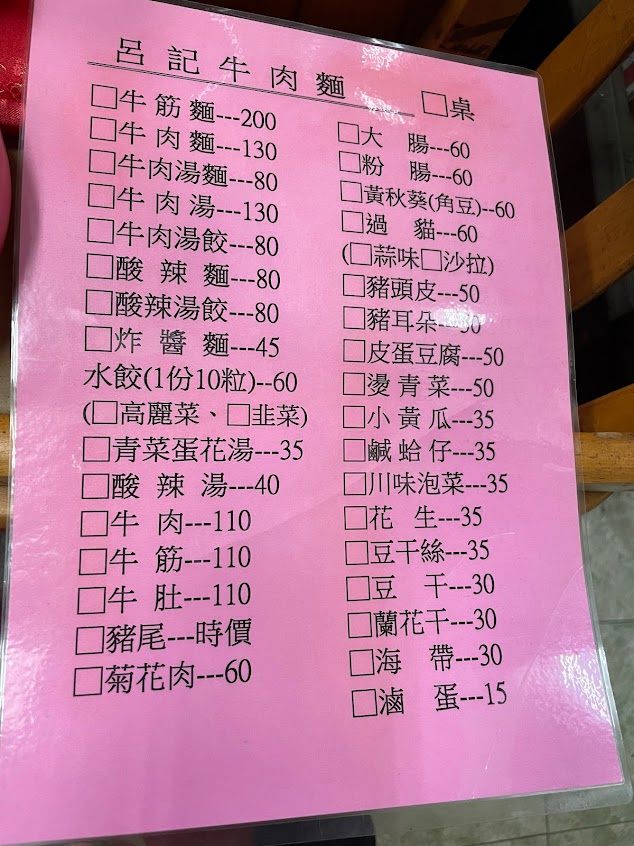 呂記牛肉麵
□桌
□牛筋麵---200
□牛肉麵---130
□牛肉湯麵---80
□牛肉湯---130
□牛肉湯餃---80
□酸辣麵---80
□酸辣湯餃---80
□炸醬麵---45
水餃(1份10粒)--60
(□高麗菜、□韭菜)
□青菜蛋花湯---35
□酸辣湯---40
□牛肉---110
□牛筋---110
□牛肚---110
□豬尾---時價
□菊花肉---60
□大腸---60
□粉腸---60
□黃秋葵(角豆)--60
□過貓---60
(□蒜味□沙拉)
□豬頭皮---50
□豬耳朵---50
□皮蛋豆腐---50
□燙青菜---50
□小黃瓜---35
□鹹蛤仔---35
□川味泡菜---35
□花生---35
□豆干絲---35
□豆干---30
□蘭花干---30
□海帶---30
□滷蛋---15